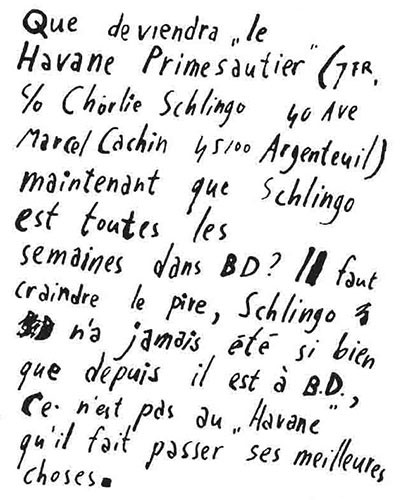 Que deviendra „le
Havane Primesautier" (7FR.
c/o Charlie Schlingo 40 Ave
Marcel Cachin 45100 Argenteuil)
maintenant que Schlingo
est toutes les
semaines dans BD? Il faut
craindre le pire, Schlingo
n'a jamais été si bien
que depuis il est à B.D.,
Ce n'est pas au „Havane"
qu'il fait passer ses meilleures
choses.